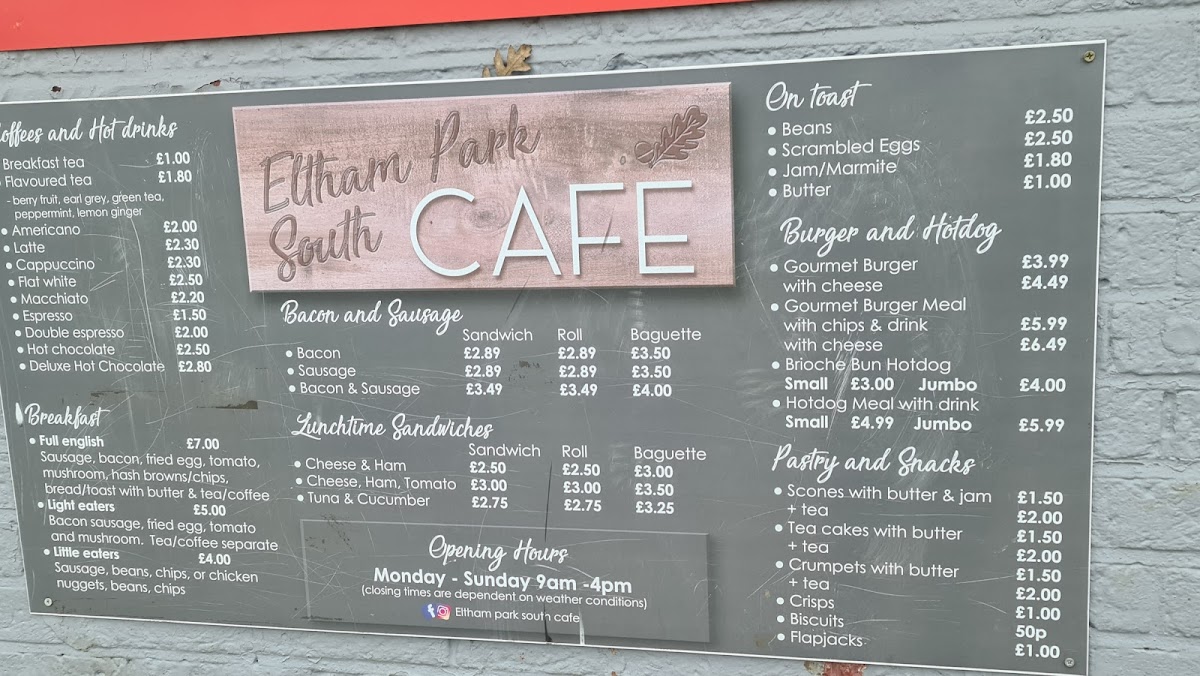 offees and Hot drinks
Breakfast tea £1.00
Flavoured tea £1.80
- berry fruit, earl grey, green tea,
peppermint, lemon ginger
• Americano £2.00
• Latte £2.30
• Cappuccino £2.30
• Flat white £2.50
• Macchiato £2.20
• Espresso £1.50
• Double espresso £2.00
• Hot chocolate £2.50
• Deluxe Hot Chocolate £2.80
Breakfast
• Full english £7.00
Sausage, bacon, fried egg, tomato,
mushroom, hash browns/chips,
bread/toast with butter & tea/coffee
• Light eaters £5.00
Bacon sausage, fried egg, tomato
and mushroom. Tea/coffee separate
• Little eaters £4.00
Sausage, beans, chips, or chicken
nuggets, beans, chips
Eltham Park
South CAFE
Bacon and Sausage
Sandwich Roll Baguette
• Bacon £2.89 £2.89 £3.50
• Sausage £2.89 £2.89 £3.50
• Bacon & Sausage £3.49 £3.49 £4.00
Lunchtime Sandwiches
Sandwich Roll Baguette
• Cheese & Ham £2.50 £2.50 £3.00
• Cheese, Ham, Tomato £3.00 £3.00 £3.50
• Tuna & Cucumber £2.75 £2.75 £3.25
Opening Hours
Monday - Sunday 9am -4pm
(closing times are dependent on weather conditions)
Eltham park south cafe
On toast
• Beans £2.50
• Scrambled Eggs £2.50
• Jam/Marmite £1.80
• Butter £1.00
Burger and Hotdog
• Gourmet Burger £3.99
with cheese £4.49
• Gourmet Burger Meal
with chips & drink £5.99
with cheese £6.49
• Brioche Bun Hotdog
Small £3.00 Jumbo £4.00
• Hotdog Meal with drink
Small £4.99 Jumbo £5.99
Pastry and Snacks
• Scones with butter & jam £1.50
+ tea £2.00
• Tea cakes with butter £1.50
+ tea £2.00
• Crumpets with butter £1.50
+ tea £2.00
• Crisps £1.00
• Biscuits 50p
• Flapjacks £1.00